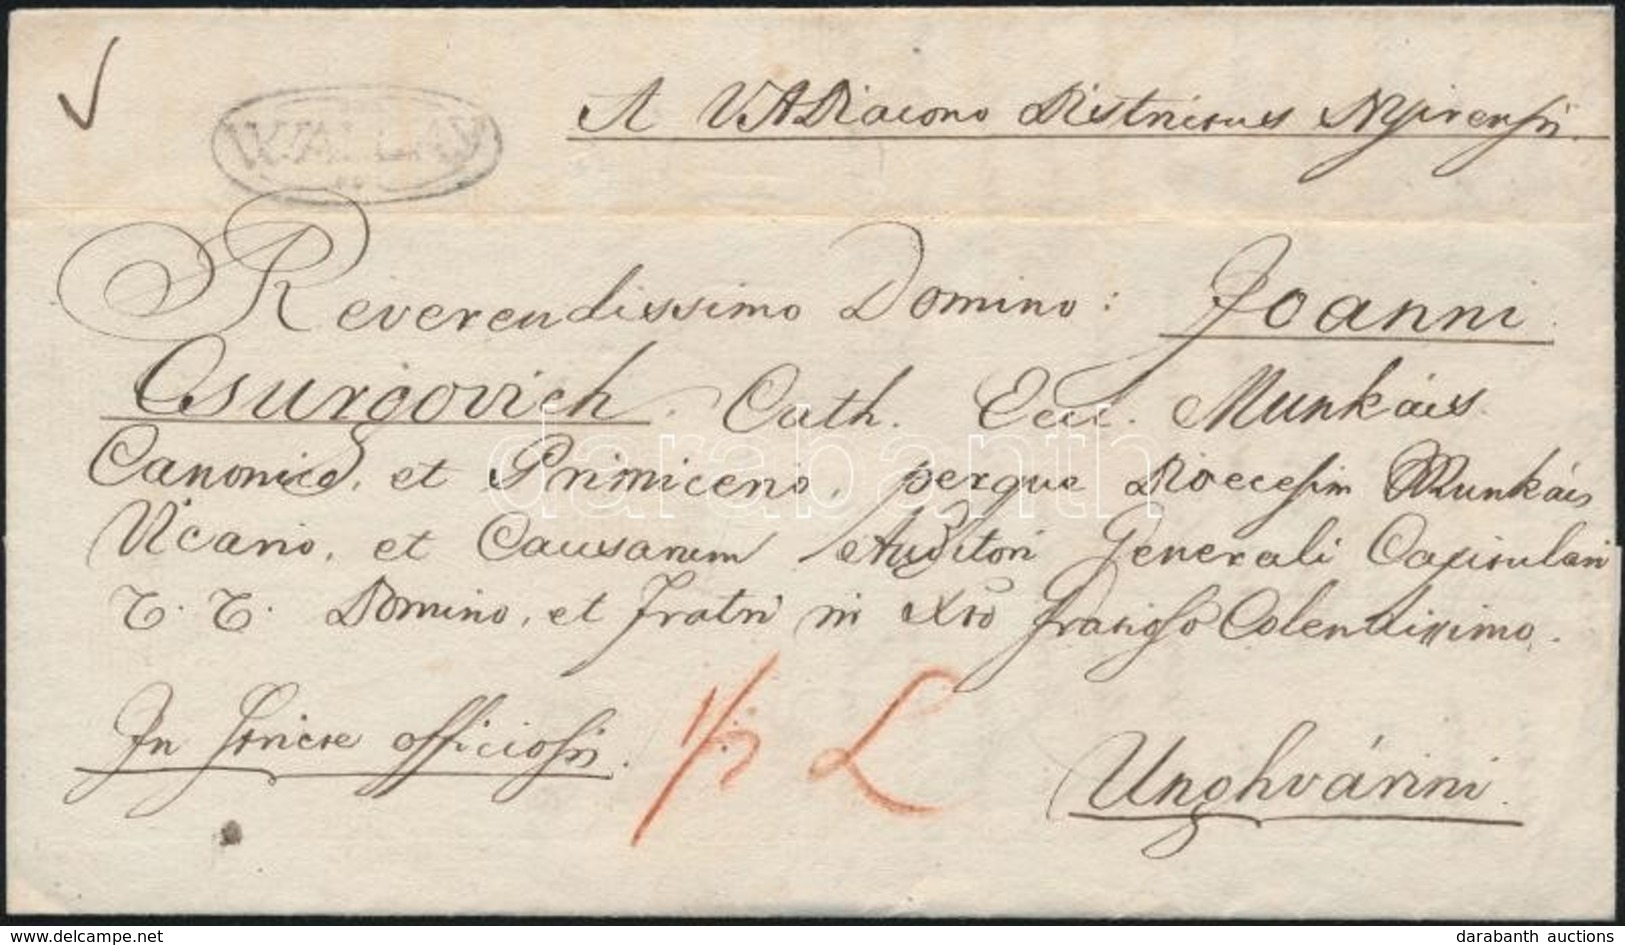 W. ALLAY
A VADiacono Districtus Nyirensis.
Reverendissimo Domino: Joanni
Csurgovich. Cath. Eccl. Munkács.
Canonico, et Primicerio, perque Dioecesim Munkács
Vicario, et Causarum Auditori Generali Capitulari
T. T. Domino, et Fratri in Xto Colendissimo.
In officiosis.
1/2 L
Unghvárini.
darabanth
www.delcampe.net
darabanth auctions